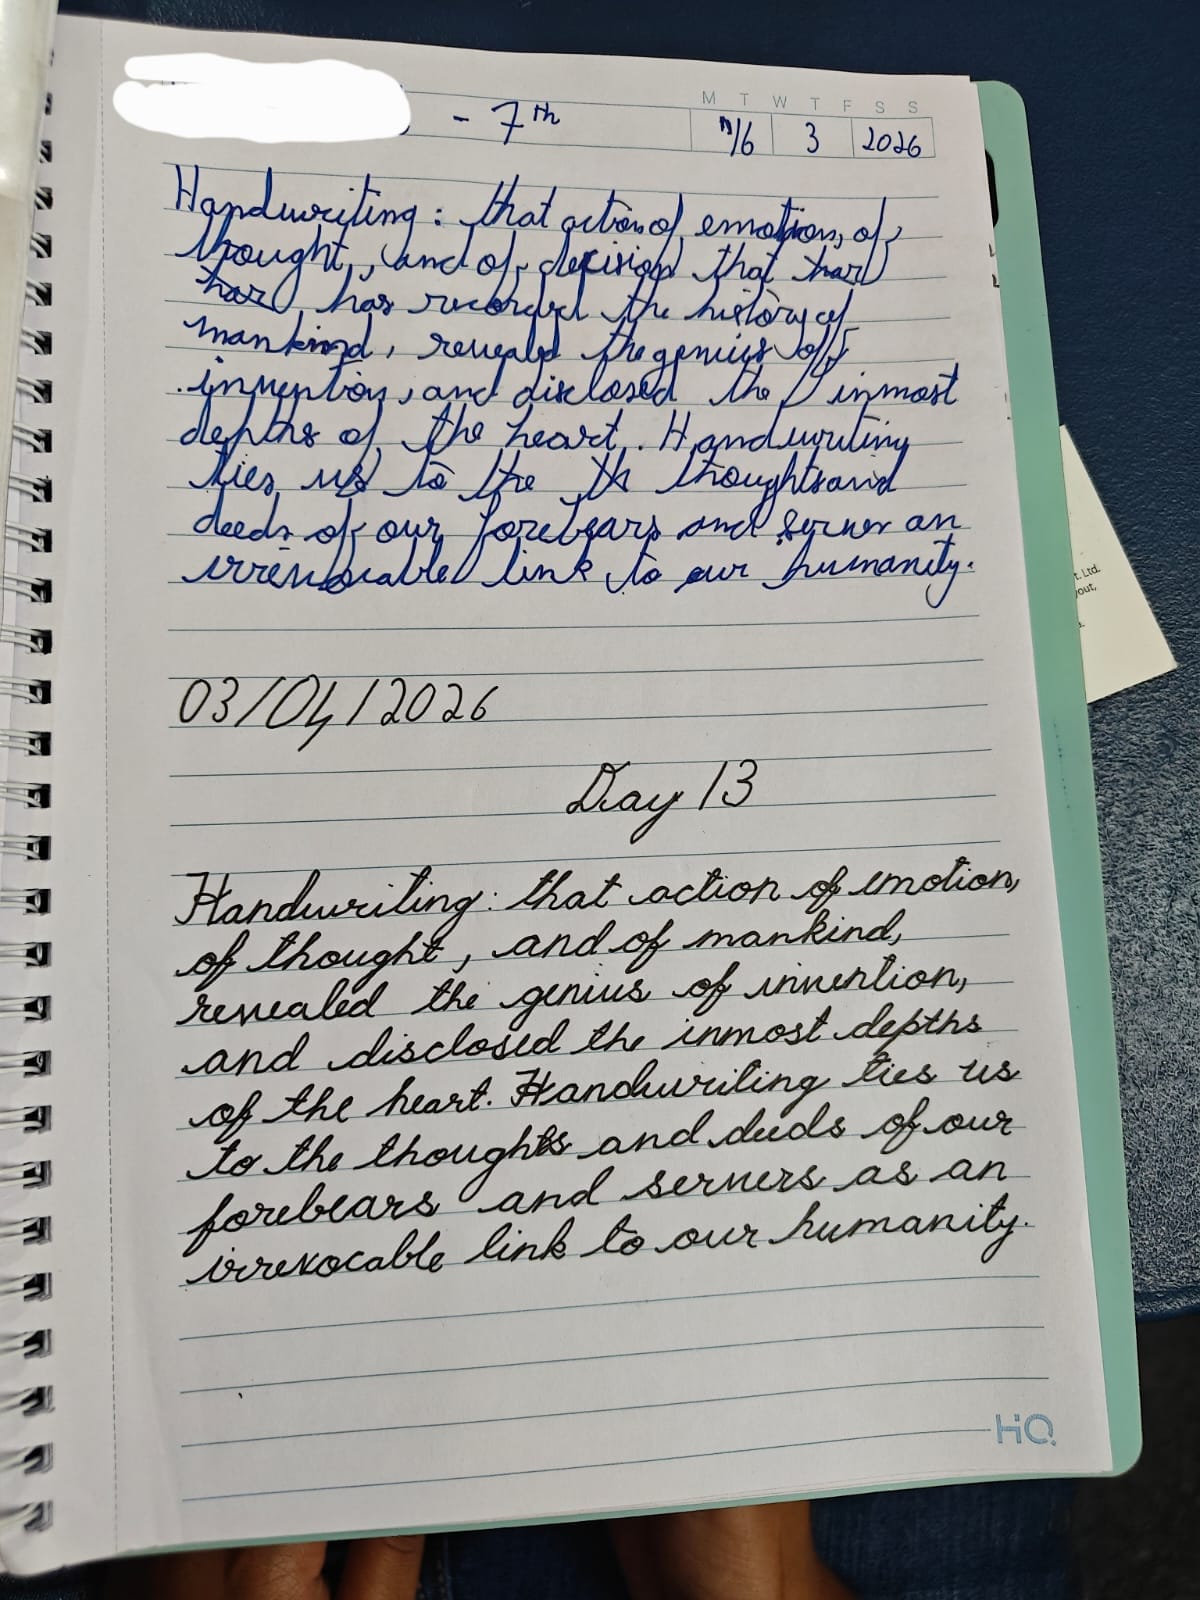 - 7th
M T W T F S S
16 3 2026
Handwriting: that action of emotion, of
thought, and of decision that har
har has recorded the history of
mankind, revealed the genius of
invention, and disclosed the inmost
depths of the heart. Handwriting
ties us to the th thoughts and
deeds of our forebears and serves an
irrevocable link to our humanity.
03/04/2026
Day 13
Handwriting: that action of emotion,
of thought, and of mankind,
revealed the genius of invention,
and disclosed the inmost depths
of the heart. Handwriting ties us
to the thoughts and deeds of our
forebears and servers as an
irrevocable link to our humanity.
HQ
t. Ltd.
out,